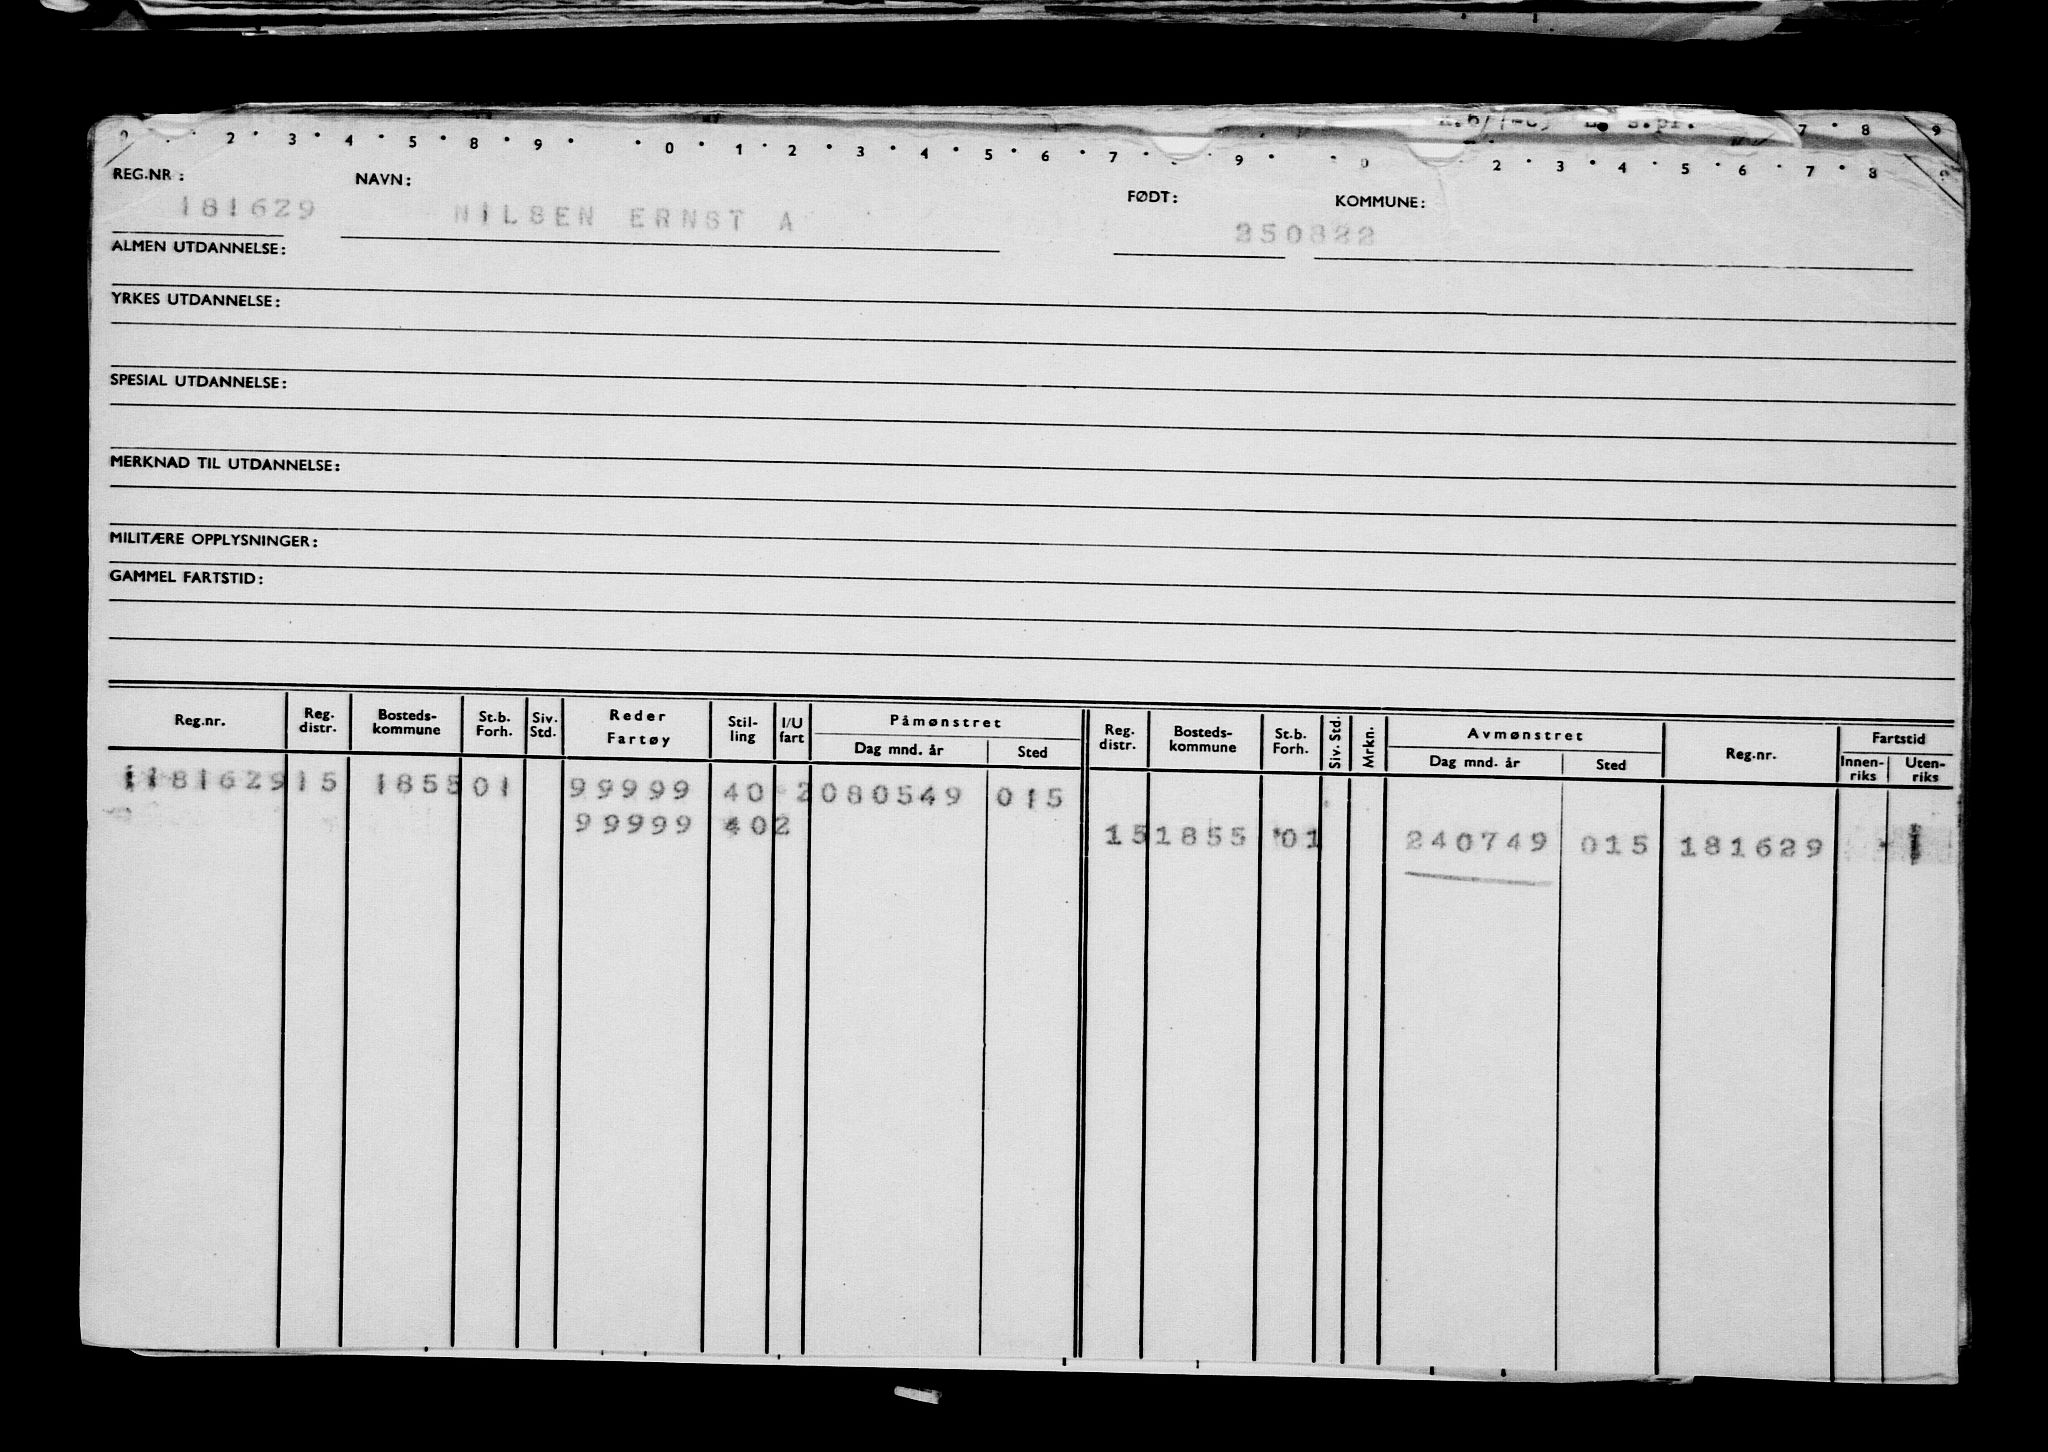 K.
0 2 3 4 5 8 9 0 1 2 3 4 5 6 7 9 0 2 3 4 5 6 7 8 9
7 8 9
REG.NR: NAVN: FØDT: KOMMUNE:
181629 NILSEN ERNST A 250822
ALMEN UTDANNELSE:
YRKES UTDANNELSE:
SPESIAL UTDANNELSE:
MERKNAD TIL UTDANNELSE:
MILITÆRE OPPLYSNINGER:
GAMMEL FARTSTID:
Reg.nr. Reg. distr. Bosteds- kommune St.b. Forh. Siv. Std. Reder Fartøy Stil- ling I/U fart Påmønstret Dag mnd. år Sted Reg. distr. Bosteds- kommune St.b. Forh. Siv. Std. Mrkn. Avmønstret Dag mnd. år Sted Reg.nr. Fartstid Innen- riks Uten- riks
1181629 15 1855 01 99999 40 2 080549 015
99999 402 15 1855 01 240749 015 181629